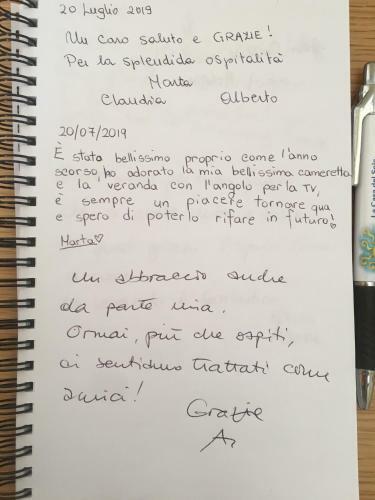 20 Luglio 2019
Un caro saluto e GRAZIE!
Per la splendida ospitalità
Marta
Claudia Alberto
20/07/2019
È stato bellissimo proprio come l'anno
scorso, ho adorato la mia bellissima cameretta
e la veranda con l'angolo per la TV,
è sempre un piacere tornare qua
e spero di poterlo rifare in futuro!
Marta♡
Un abbraccio anche
da parte mia.
Ormai, più che ospiti,
ci sentiamo trattati come
amici!
Grazie
La Casa del Sole